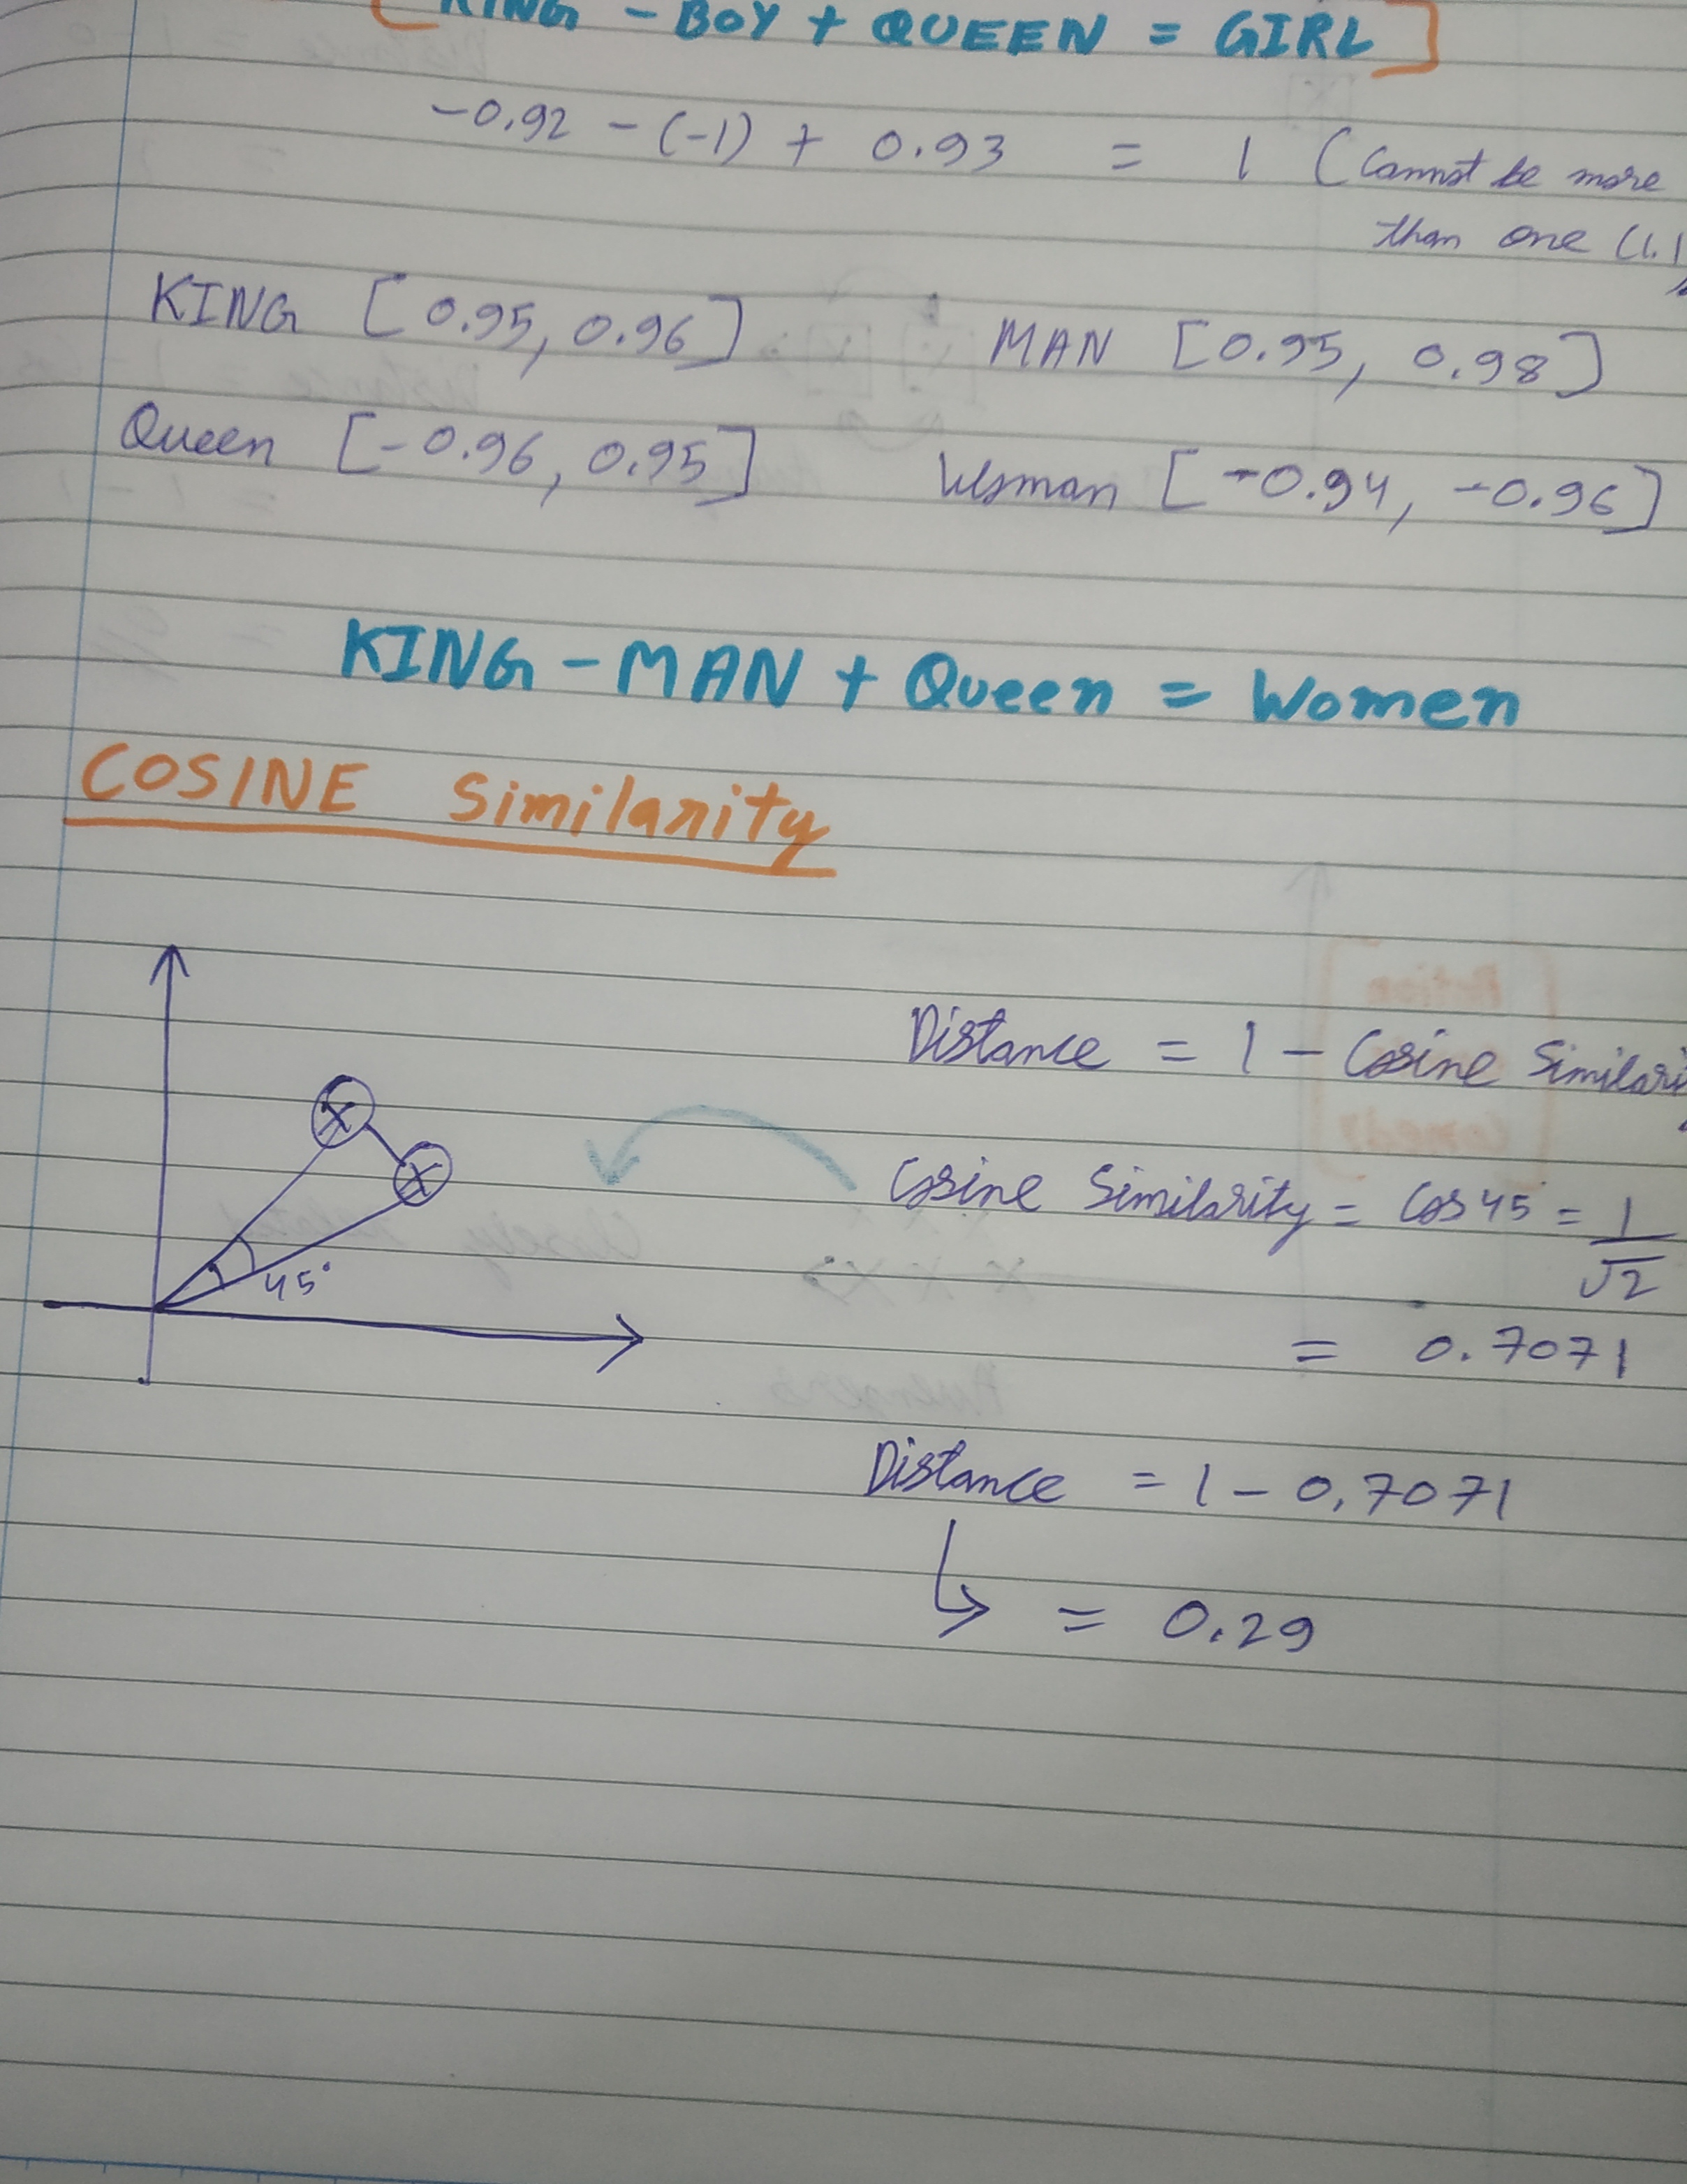 KING - BOY + QUEEN = GIRL ]
-0.92 - (-1) + 0.93 = 1 (Cannot be more
than one (1.)
KING [0.95, 0.96] MAN [0.95, 0.98]
Queen [-0.96, 0.95] Woman [-0.94, -0.96]
KING - MAN + Queen = Women
COSINE Similarity
Distance = 1 - Cosine Similari
Cosine Similarity = Cos 45 = 1/√2
45°
= 0.7071
Distance = 1 - 0.7071
= 0.29